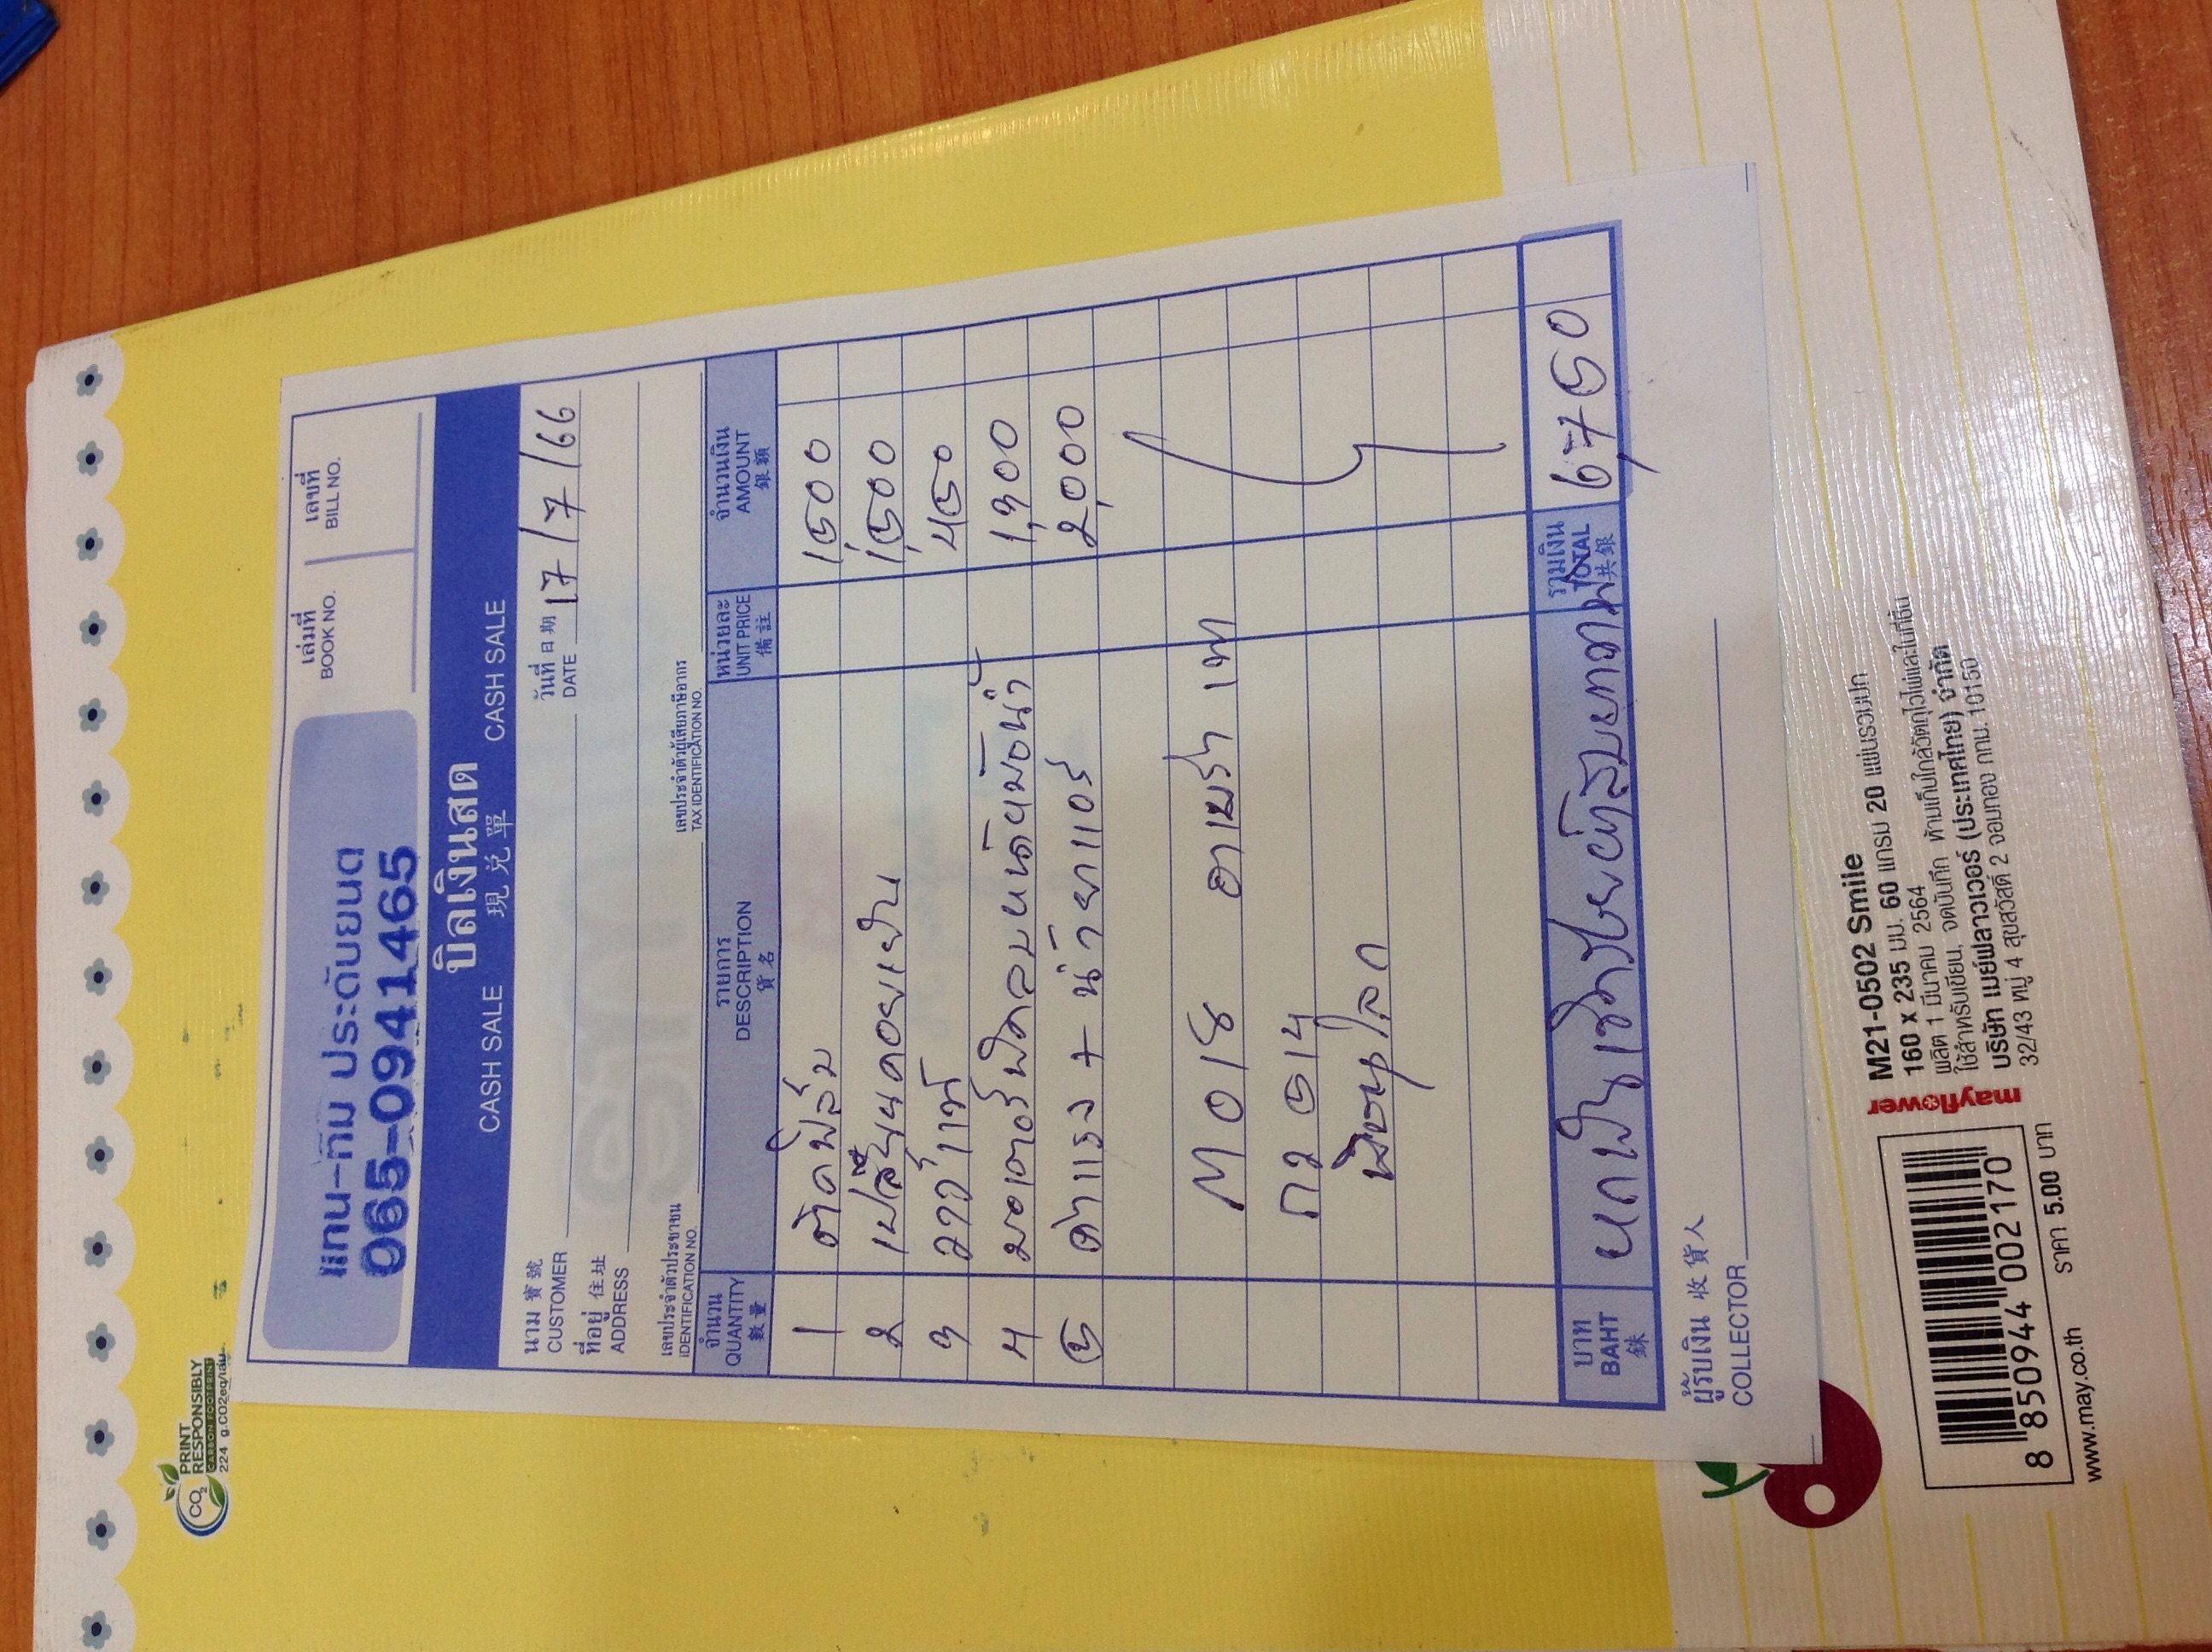 แทน-กิม ประดับยนต์
065-0941465
เล่มที่
BOOK NO.
เลขที่
BILL NO.
บิลเงินสด
CASH SALE 現兌單 CASH SALE
วันที่ 日期
DATE 17/7/66
นาม 寶號
CUSTOMER
ที่อยู่ 住址
ADDRESS
เลขประจำตัวประชาชน
IDENTIFICATION NO.
เลขประจำตัวผู้เสียภาษีอากร
TAX IDENTIFICATION NO.
จำนวน รายการ หน่วยละ จำนวนเงิน
QUANTITY DESCRIPTION UNIT PRICE AMOUNT
數量 貨名 備註 銀額
1 ติดฟิล์ม 1500
2 เปลี่ยนคอยเย็น 1,500
3 วาว์แท้ 450
4 มอเตอร์พัดลมหน้าหม้อน้ำ 1,300
5 ค่าแรง + น้ำยาแอร์ 2,000
M018 อาเมร่า เทา
กว 514
พิษณุโลก
บาท รวมเงิน
BAHT TOTAL 6,750
銖 共銀
ผู้รับเงิน 收貨人
COLLECTOR
CO2 PRINT
RESPONSIBLY
CARBON FOOTPRINT
224 g.CO2eq/เล่ม
mayflower
M21-0502 Smile
160 x 235 มม. 60 แกรม 20 แผ่นรวมปก
ผลิต 1 มีนาคม 2564
ใช้สำหรับเขียน, จดบันทึก ห้ามเก็บใกล้วัตถุไวไฟและในที่ชื้น
บริษัท เมย์ฟลาวเวอร์ (ประเทศไทย) จำกัด
32/43 หมู่ 4 สุขสวัสดิ์ 2 จอมทอง กทม. 10150
8 850944 002170
www.may.co.th ราคา 5.00 บาท